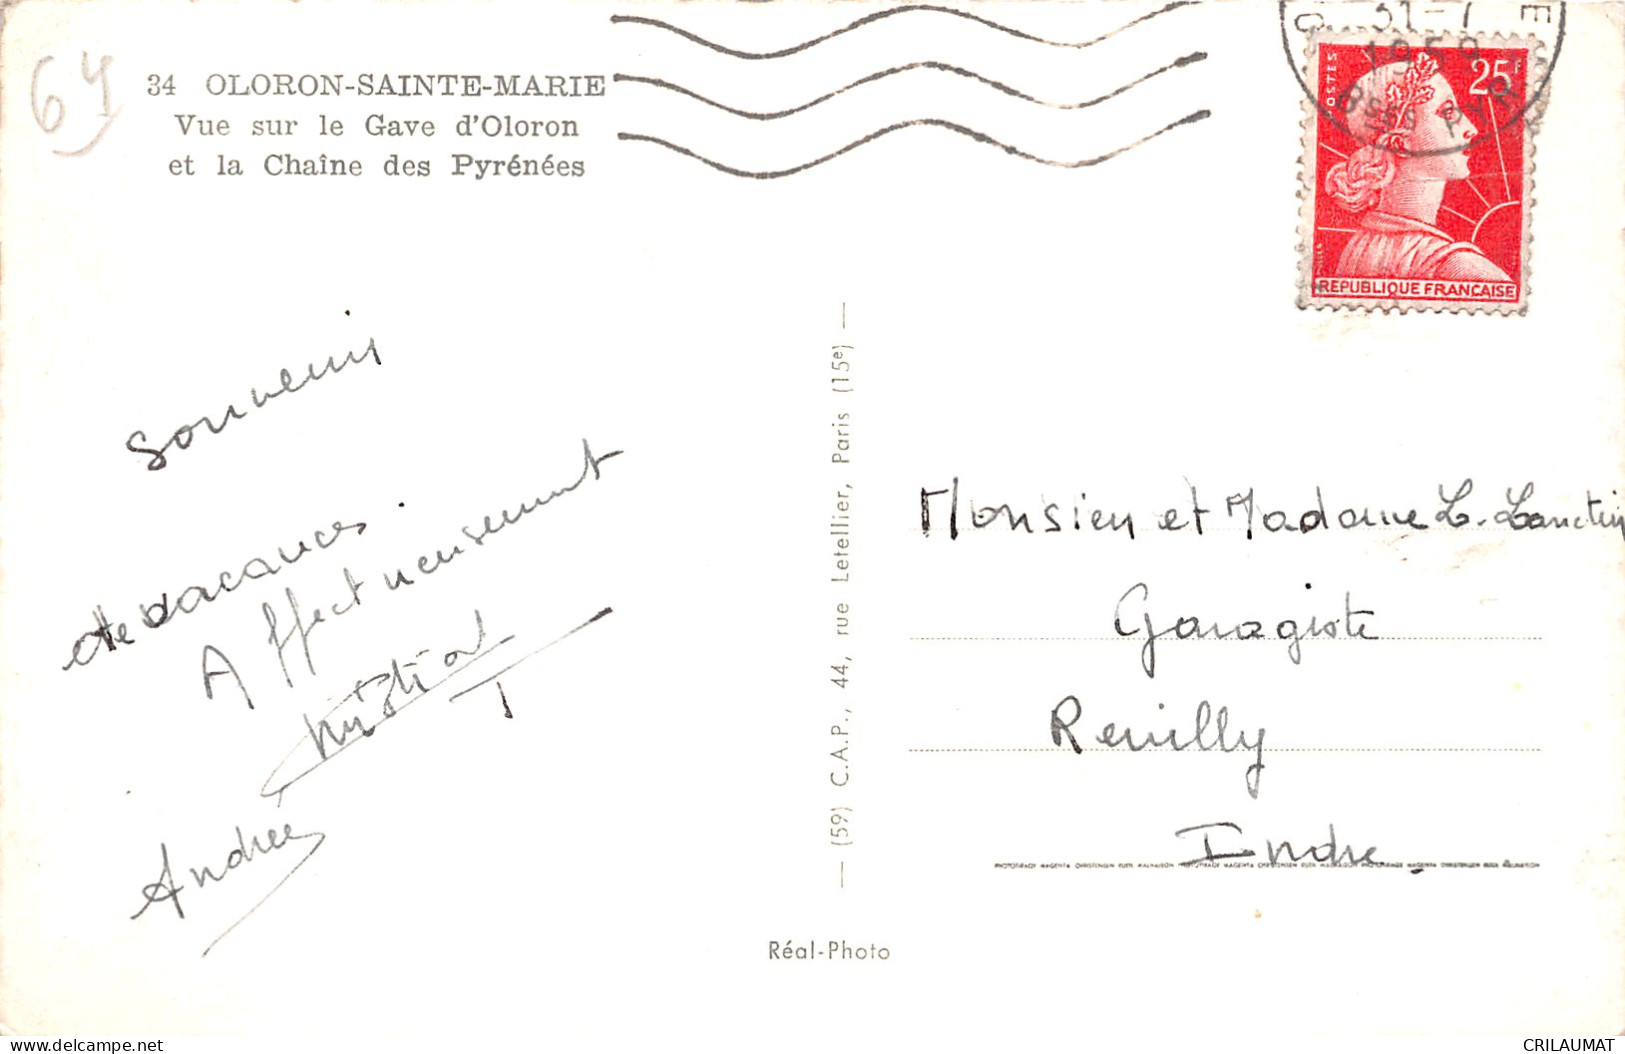 64
34 OLORON-SAINTE-MARIE
Vue sur le Gave d'Oloron
et la Chaîne des Pyrénées
31-7 E
1959
Bses PYR
POSTES
25F
REPUBLIQUE FRANÇAISE
Souvenir
de vacances.
Affectueusement
Andrée
(59) C.A.P., 44, rue Letellier, Paris (15e)
Monsieur et Madame L. Lanctin
Garagiste
Reuilly
Indre
Réal-Photo
CRILAUMAT